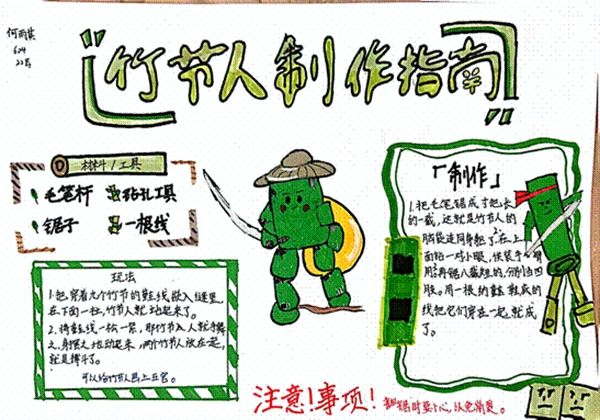 何雨
624
22号
竹节人制作指南
材料/工具
毛笔杆
钻孔工具
锯子
一根线
玩法
1.把穿着九个竹节的鞋线嵌入缝里,
在下面一拉,竹节人就动起来了。
2.将鞋线一松一紧,那竹节人就手舞
之、身摆之地动起来,两个竹节人放在一起,
就是搏斗了。
可以给竹节人画上五官。
「制作」
1.把毛笔锯成寸把长
的一截,这就是竹节人的
脑袋连同身躯了。在上
面钻一对小眼,供装手臂
用。再锯八截短的,分别当四
肢。用一根纳鞋底的
线把它们穿在一起,就成
了。
注意!事项!
锯时要小心,以免